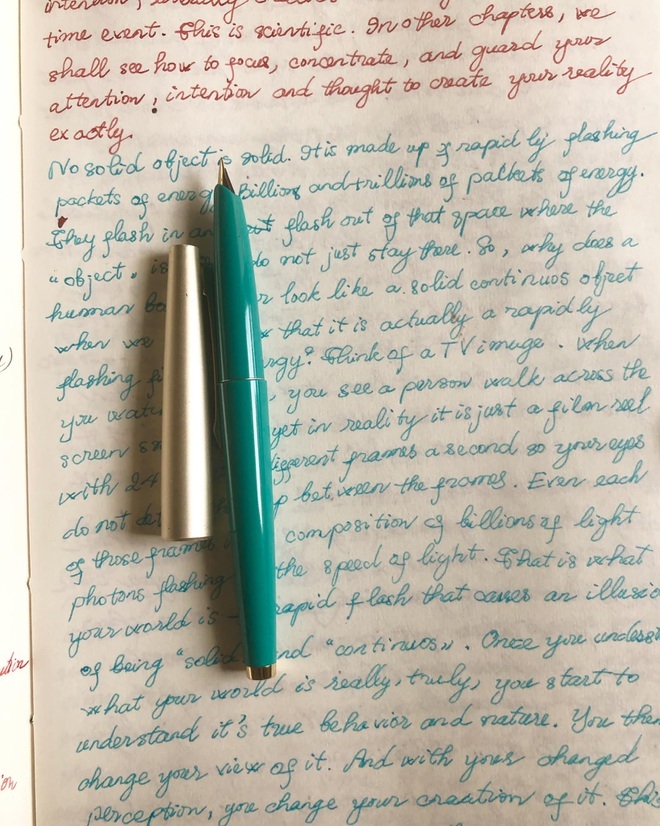 intention,
time event. This is scientific. In other chapters, we
shall see how to focus, concentrate, and guard your
attention, intention and thought to create your reality
exactly.
No solid object is solid. It is made up of rapid lij flashing
packets of energy. Billions and trillions of packets of energy.
They flash in and out flash out of that space where the
"object" is do not just stay there. So, why does a
human bo r look like a solid continuos object
when we that it is actually a rapidly
flashing fi rgy? Think of a TV image. When
you watc , you see a person walk across the
screen sm yet in reality it is just a film reel
with 24 different frames a second so your eyes
do not det p between the frames. Even each
of those frames composition of billions of light
photons flashing the speed of light. That is what
your world is - rapid flash that causes an illusio
of being "solid" and "continuos". Once you underst
what your world is really, truly, you start to
understand it's true behavior and nature. You then
change your view of it. And with your changed
perception, you change your creation of it. This
ution
ion